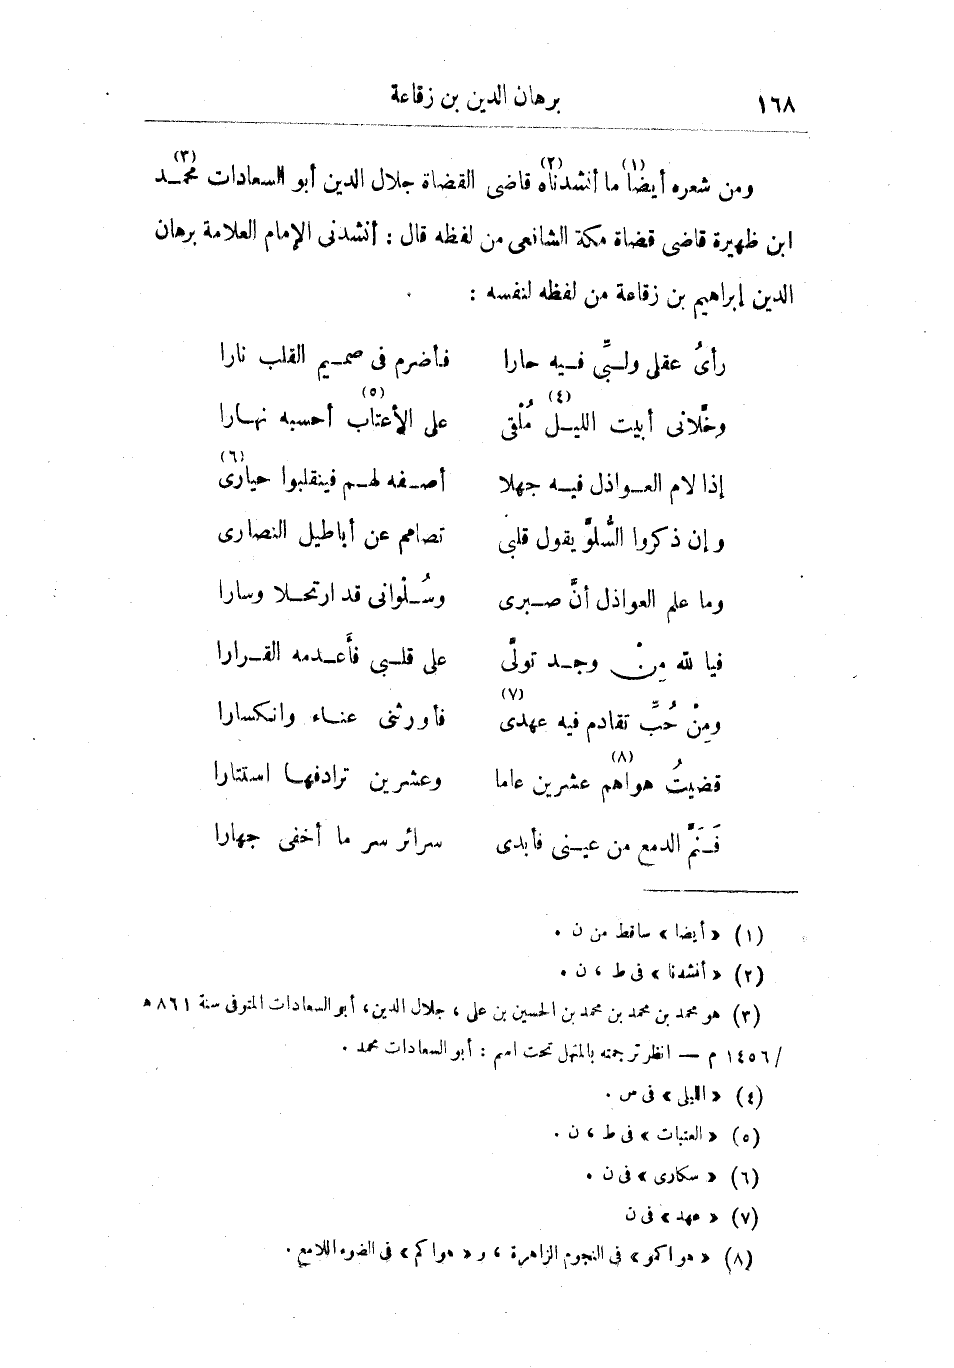 ١٦٨ برهان الدين بن زقاعة
ومن شعره أيضا(١) ما أنشدناه(٢) قاضى القضاة جلال الدين أبو السعادات محمد(٣)
ابن ظهيرة قاضى قضاة مكة الشافعى من لفظه قال : أنشدنى الإمام العلامة برهان
الدين إبراهيم بن زقاعة من لفظه لنفسه :
رأىُ عقلى ولبِّى فيه حارا فأضرم فى صميم القلب نارا
وخّلانى أبيت الليل(٤) مُلْقى على الأعتاب(٥) أحسبه نهارا
إذا لام العواذل فيه جهلا أصفه لهم فينقلبوا حيارى(٦)
وإن ذكروا السُّلوَّ يقول قلبى تصامم عن أباطيل النصارى
وما علم العواذل أنَّ صبرى وسُلْوانى قد ارتحلا وسارا
فيا لله مِنْ وجد تولَّى على قلبى فأَعدمه القرارا
ومِنْ حُبِّ تقادم فيه عهدى(٧) فأورثنى عناء وانكسارا
قضيتُ هواهم(٨) عشرين عاما وعشرين ترادفها استتارا
فَنَمَّ الدمع من عينى فأبدى سرائر سر ما أخفى جهارا
(١) « أيضا » ساقط من ن .
(٢) « أنشدنا » فى ط ، ن .
(٣) هو محمد بن محمد بن محمد بن الحسين بن على ، جلال الدين ، أبو السعادات المتوفى سنة ٨٦١ هـ
/ ١٤٥٦ م — انظر ترجمته بالمنهل تحت اسم : أبو السعادات محمد .
(٤) « الليلى » فى س .
(٥) « العتبات » فى ط ، ن .
(٦) « سكارى » فى ن .
(٧) « عهد » فى ن
(٨) « هواكمو » فى النجوم الزاهرة ، و « هواكم » فى الضوء اللامع .